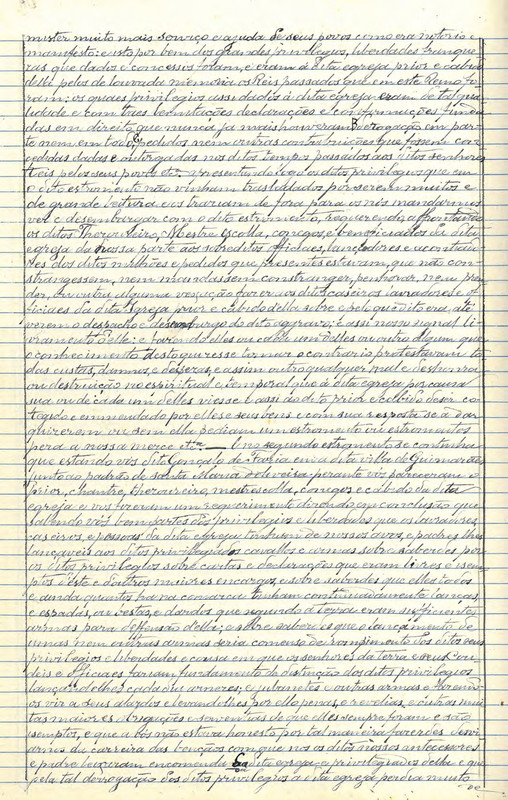 mister muito mais serviço e ajuda de seus povos como era notorio e
manifesto: e isto por bem dos grandes privilegios, liberdades franque
zas que dados e concessos foram, e eram á dita egreja prior e cabido
della pelos de louvada memoria os Reis passados que em este Reino fo
ram: os quaes privilegios assi dados á dita egreja eram de tal qua
lidade e com taes declarações e confirmações funda
das em direito que nunca ja mais houveram derogação em par
te nem em todo pedidos nem outras contribuições que fossem con
cedidas dadas e outorgadas nos ditos tempos passados aos ditos senhores
Reis pelos seus povos etc. apresentando logo os ditos privilegios que em
o dito estromento não vinham trasladados por serem muitos e
de grande leitura e os traziam de fora para os nós mandarmos
ver e desembargar com o dito estromento, requerendo e frontando
os ditos Thezoureiro, Mestre escolla, conegos e beneficiados da dita
egreja da nossa parte aos sobreditos officiaes, lançadores e
res dos ditos milhões e pedidos que presentes estavam, que não con
strangessem, nem mandassem constranger, penhorar, nem pren
der, ou outra alguma vexação fazer aos ditos caseiros lavradores e of
ficiaes da dita egreja prior e cabido della sobre e pelo que dito era, até
verem o despacho e desembargo do dito aggravo; e assi nosso signal li
vramento d'elle: e fazendo elles ou cada um delles ou outro algum que
o conhecimento desto quizesse tomar o contrario protestavam to
das custas, damnos, e despezas, e assim outro qualquer mal e destroimento
ou destruição no espiritual e temporal vir á dita egreja por causa
sua ou de cada um delles viesse e assi do dito prior e cabido de ser co
rregido e emmendado por elles e seus bens e com sua resposta se a dar
quizerem ou sem ella pediam um estromento ou estromentos
pera a nossa mercê etc.ª — E no segundo estromento se continha
que estando vós dito Gonçalo de Faria em a dita villa de Guimarães
junto ao padrão de Santa Maria d'Oliveira perante vós pareceram o
Prior, Chantre, Thezoureiro, mestre escolla, conegos e cabido da dita
egreja e vos fizeram um requerimento dizendo em conclusão que
sabendo vós bem partes dos privilegios e liberdades que os lavradores,
caseiros, e pessoas da dita egreja tinham de nossos avos, e padres lhes
lançaveis aos ditos privilegiados cavallos e armas sobre saberdes por
os ditos privilegios sobre cartas e declarações que eram livres e isem
ptos d'este e d'outros maiores encargos, e sobre saberdes que elles todos
e ainda quantos ha na comarca tinham continuadamente lanças,
e espadas, ou bestas, e dardos que segundo a terra eram sufficientes
armas para deffensão della; e sobre saberdes que o lançamento de
umas nem outras armas seria começo de rompimento dos ditos seus
privilegios e liberdades e causa em que os senhores da terra e seus Ou
vidores e officiaes fariam fundamento de distinção dos ditos privilegios
lançando-lhes cada dia arnezes, e jubanetes e outras armas e fazendo-
os vir a seus alardos e levando-lhes por ello penas, e revelias, e outras mui
tas maiores obrigações e serventias de que elles sempre foram e são
isemptos, e que a vós não estava honesto por tal maneira fazerdes desvi
armos da carreira das benções com que nos os ditos nossos antecessores
e padre leixaram encomenda da dita egreja e privilegiados della e que
pela tal derogação dos ditos privilegios a dita egreja perdia muito
de